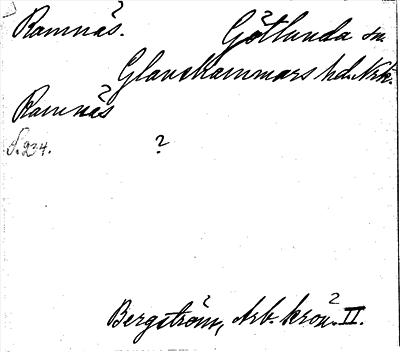 Ramnäs. Götlunda sn.
Glanshammars hd. Nrk.
Ramnäs
S. 234. ?
Bergström, Arb. krön. II.